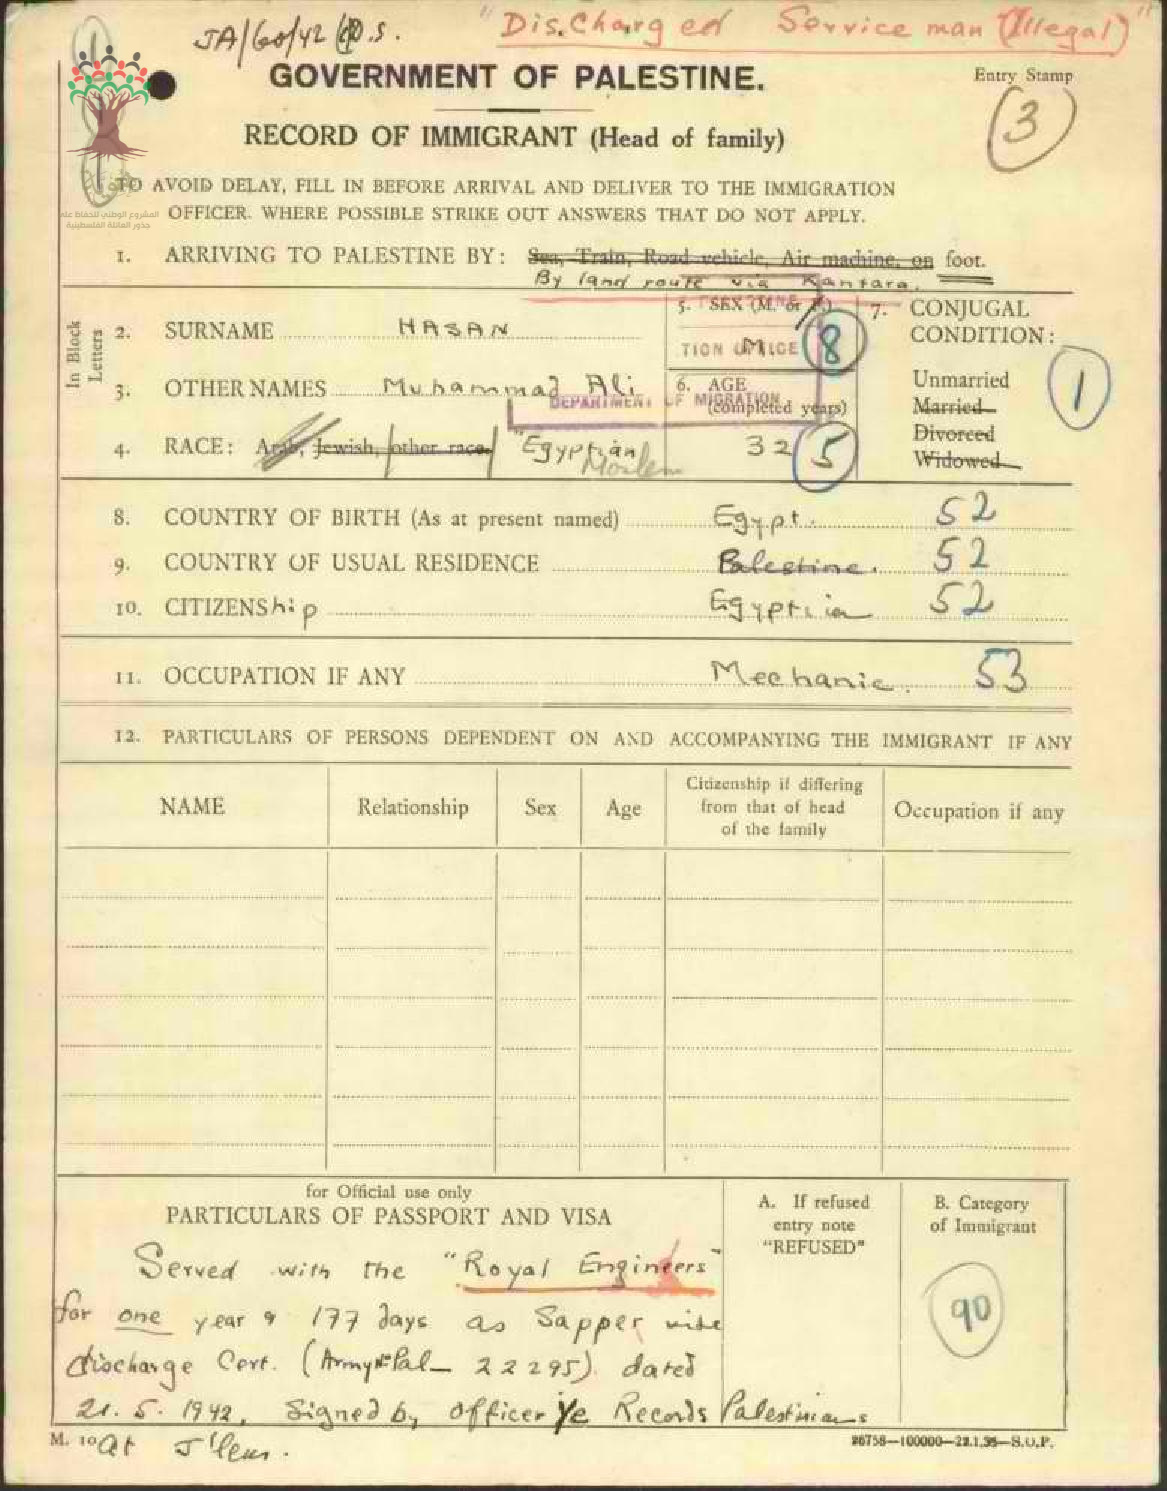 JA/60/42 (D.S.
"Dis.Charged Service man (Illegal)"
GOVERNMENT OF PALESTINE.
Entry Stamp
3
RECORD OF IMMIGRANT (Head of family)
TO AVOID DELAY, FILL IN BEFORE ARRIVAL AND DELIVER TO THE IMMIGRATION
OFFICER. WHERE POSSIBLE STRIKE OUT ANSWERS THAT DO NOT APPLY.
المشروع الوطني للحفاظ على
جذور العائلة الفلسطينية
1. ARRIVING TO PALESTINE BY: Sea, Train, Road vehicle, Air machine, on foot.
By land route via Kantara.
In Block Letters
2. SURNAME HASAN
3. OTHER NAMES Muhammad Ali
4. RACE: Arab, Jewish, other race "Egyptian
Moslem
5. SEX (M. or F.)
M 8
TION OFFICE
DEPARTMENT OF MIGRATION
6. AGE
(completed years)
32 5
7. CONJUGAL
CONDITION:
Unmarried
Married
Divorced
Widowed
1
8. COUNTRY OF BIRTH (As at present named) Egypt. 52
9. COUNTRY OF USUAL RESIDENCE Palestine. 52
10. CITIZENShip Egyptian 52
11. OCCUPATION IF ANY Mechanic. 53
12. PARTICULARS OF PERSONS DEPENDENT ON AND ACCOMPANYING THE IMMIGRANT IF ANY
NAME Relationship Sex Age Citizenship if differing from that of head of the family Occupation if any
for Official use only
PARTICULARS OF PASSPORT AND VISA
Served with the "Royal Engineers"
for one year & 177 days as Sapper vide
discharge Cert. (Army No Pal_ 22295). dated
21. 5. 1942, Signed by officer i/c Records Palestinians
at J'lem.
A. If refused
entry note
"REFUSED"
B. Category
of Immigrant
90
M. 10
26758—100000—22.1.36—S.O.P.